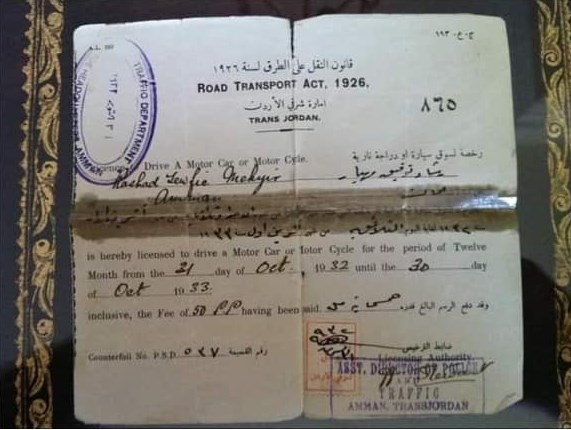 ج.ع. ١٩٣
قانون النقل على الطرق لسنة ١٩٢٦
ROAD TRANSPORT ACT, 1926,
امارة شرقي الأردن
TRANS JORDAN.
٨٦٥
TRAFFIC DEPARTMENT
AMMAN
رخصة لسوق سيارة او دراجة نارية
Drive A Motor Car or Motor Cycle.
Rashad Tewfic
رشاد توفيق
Amman
is hereby licensed to drive a Motor Car or Motor Cycle for the period of Twelve
Month from the 31 day of Oct. , 1932 until the 30 day
of Oct 1933.
inclusive, the Fee of 50 P.P having been paid.
وقد دفع الرسم البالغ قدره
ضابط الترخيص
Licensing Authority
Counterfoil No. P.S.D. ٥٣٧ رقم القسيمة
شرقي الأردن
ASST. DIRECTOR OF POLICE
AND
TRAFFIC
AMMAN, TRANSJORDAN